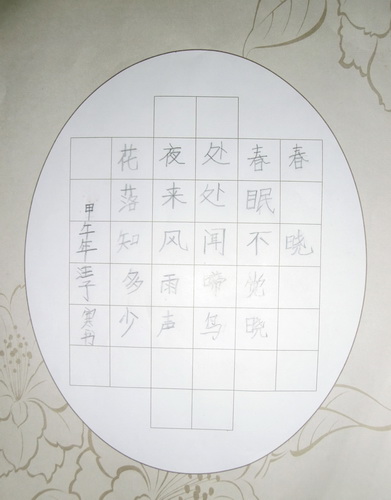 春晓
春眠不觉晓
处处闻啼鸟
夜来风雨声
花落知多少
甲午年汪子寒书